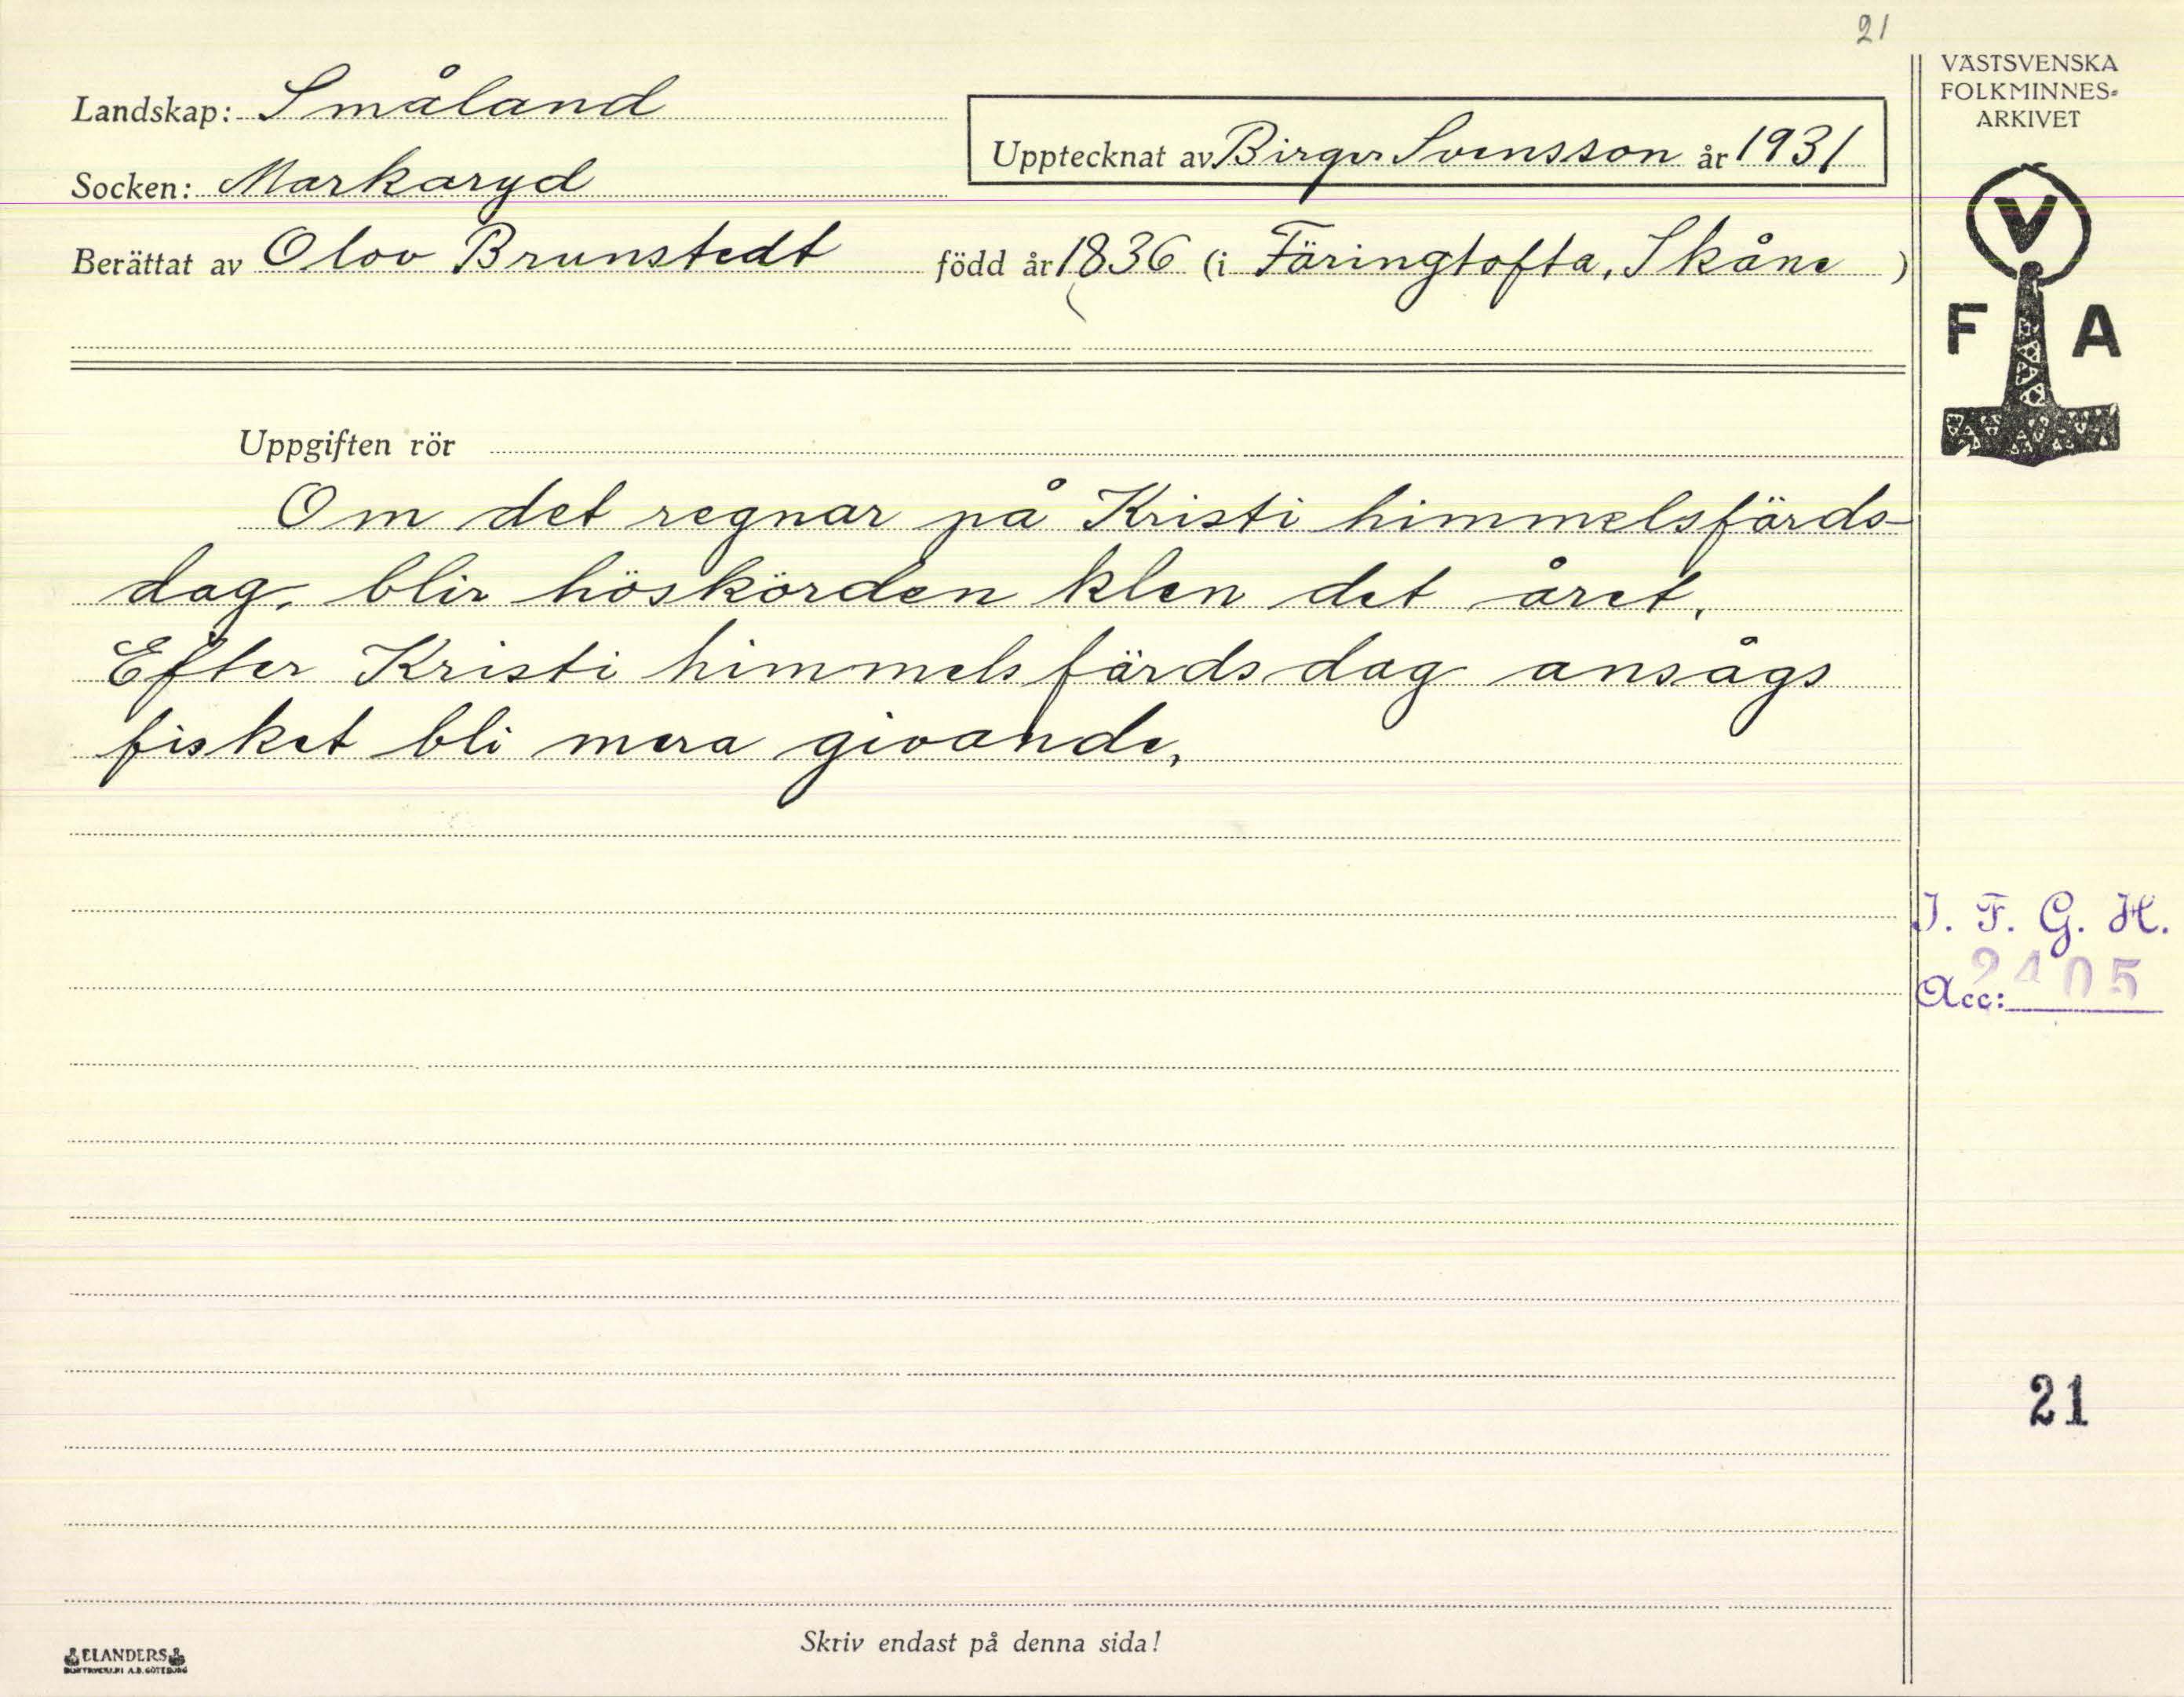 21
Landskap: Småland
Socken: Markaryd
Upptecknat av Birger Svensson år 1931
Berättat av Olov Brunstedt född år 1836 (i Färingtofta, Skåne )
VÄSTSVENSKA
FOLKMINNES-
ARKIVET
V
F A
Uppgiften rör
Om det regnar på Kristi himmelsfärds-
dag, blir höskörden klen det året.
Efter Kristi himmelsfärdsdag ansågs
fisket bli mera givande,
I. F. G. H.
Acc: 2405
21
Skriv endast på denna sida!
ELANDERS
BOKTRYCKERI A.B. GÖTEBORG